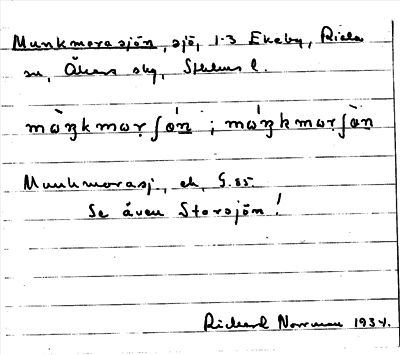 Munkmorasjön, sjö, 1-3 Ekeby, Ricka
su, Åkers skg, Sthlms l.
mὼŋkmωṛʃón ; mώŋkmωṛʃòn
Munkmorasj., ek, G.85.
Se även Storsjön!
Richard Norrman 1934.